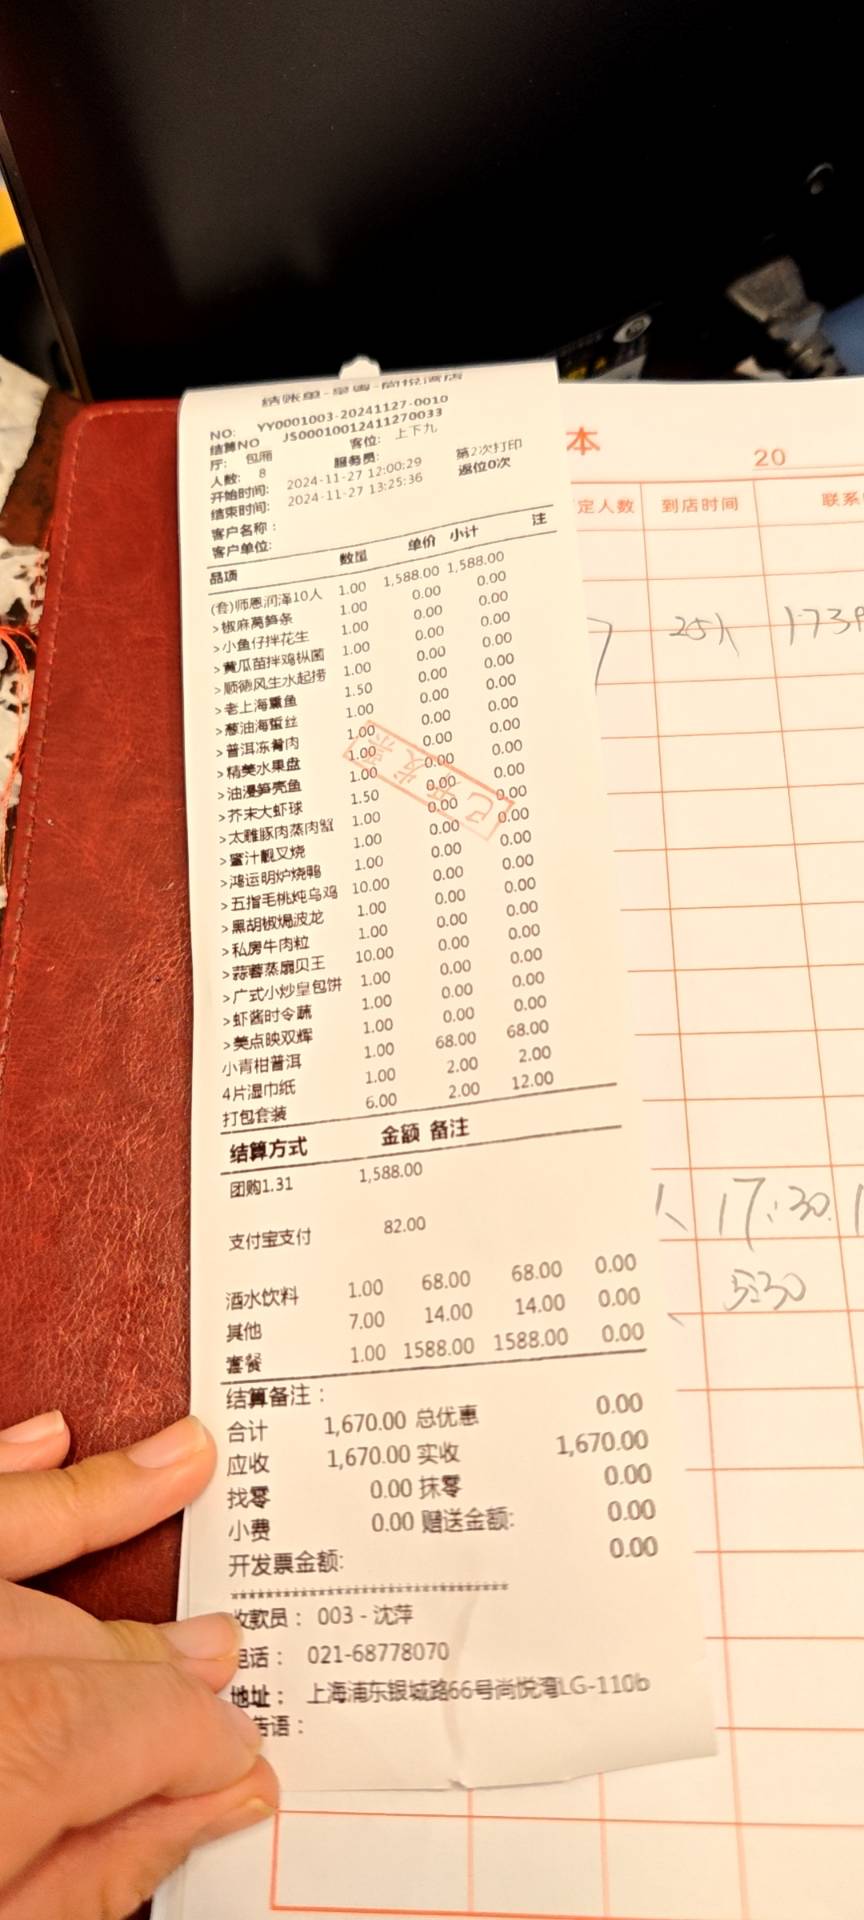 结账单-皇粤-尚悦湾店
NO: YY0001003-20241127-0010
结算NO JS00010012411270033
厅: 包厢 客位: 上下九
人数: 8 服务员: 第2次打印
开始时间: 2024-11-27 12:00:29 返位0次
结束时间: 2024-11-27 13:25:36
客户名称：
客户单位:
品项 数量 单价 小计 注
(套)师恩润泽10人 1.00 1,588.00 1,588.00
>椒麻莴笋条 1.00 0.00 0.00
>小鱼仔拌花生 1.00 0.00 0.00
>黄瓜苗拌鸡枞菌 1.00 0.00 0.00
>顺德风生水起捞 1.00 0.00 0.00
>老上海熏鱼 1.50 0.00 0.00
>葱油海蜇丝 1.00 0.00 0.00
>普洱冻肴肉 1.00 0.00 0.00
>精美水果盘 1.00 0.00 0.00
>油浸笋壳鱼 1.00 0.00 0.00
>芥末大虾球 1.50 0.00 0.00
>太雕豚肉蒸肉蟹 1.00 0.00 0.00
>蜜汁靓叉烧 1.00 0.00 0.00
>鸿运明炉烧鸭 1.00 0.00 0.00
>五指毛桃炖乌鸡 10.00 0.00 0.00
>黑胡椒焗波龙 1.00 0.00 0.00
>私房牛肉粒 1.00 0.00 0.00
>蒜蓉蒸扇贝王 10.00 0.00 0.00
>广式小炒皇包饼 1.00 0.00 0.00
>虾酱时令蔬 1.00 0.00 0.00
>美点映双辉 1.00 0.00 0.00
小青柑普洱 1.00 68.00 68.00
4片湿巾纸 1.00 2.00 2.00
打包套装 6.00 2.00 12.00
结算方式 金额 备注
团购1.31 1,588.00
支付宝支付 82.00
酒水饮料 1.00 68.00 68.00 0.00
其他 7.00 14.00 14.00 0.00
套餐 1.00 1588.00 1588.00 0.00
结算备注：
合计 1,670.00 总优惠 0.00
应收 1,670.00 实收 1,670.00
找零 0.00 抹零 0.00
小费 0.00 赠送金额: 0.00
开发票金额: 0.00
********************************
收款员： 003 - 沈萍
电话： 021-68778070
地址： 上海浦东银城路66号尚悦湾LG-110b
告语：
本
20
定人数 到店时间 联系
25人 173
17:30
5:30